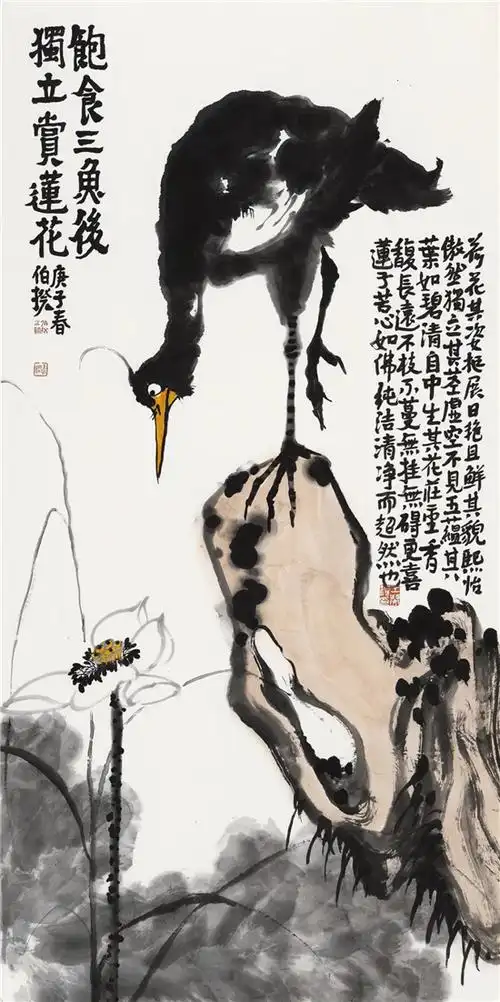 飽食三魚後
獨立賞蓮花
庚子春
伯
荷花其姿挺展日艳且鲜其貌熙怡
傲然獨立其莖虛空不見五蘊其
葉如碧清自中生其花莊重香
馥長遠不枝不蔓無挂無碍更喜
蓮子苦心如佛純洁清净而超然也